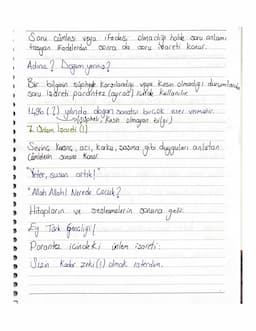 Soru cümlesi veya ifadesi olmadığı halde soru anlamı
taşıyan ifadelerden sonra da soru işareti konur.
Adınız? Doğum yeriniz?
Bir bilginin şüpheyle karşılandığı veya kesin olmadığı durumlarda
soru işareti parantez (ayraç) içinde kullanılır.
1496 (?) yılında doğan sanatçı birçok eser vermiştir.
(şüpheli, kesin olmayan bilgi)
7. Ünlem İşareti (!)
Sevinç, kıvanç, acı, korku, şaşma gibi duyguları anlatan
cümlelerin sonuna konur.
"Yeter, susun artık!"
"Allah Allah! Nerede Çocuk?"
Hitapların ve seslenmelerin sonuna gelir.
Ey Türk Gençliği!
Parantez içindeki ünlem işareti:
Sizin kadar zeki (!) olmak isterdim.